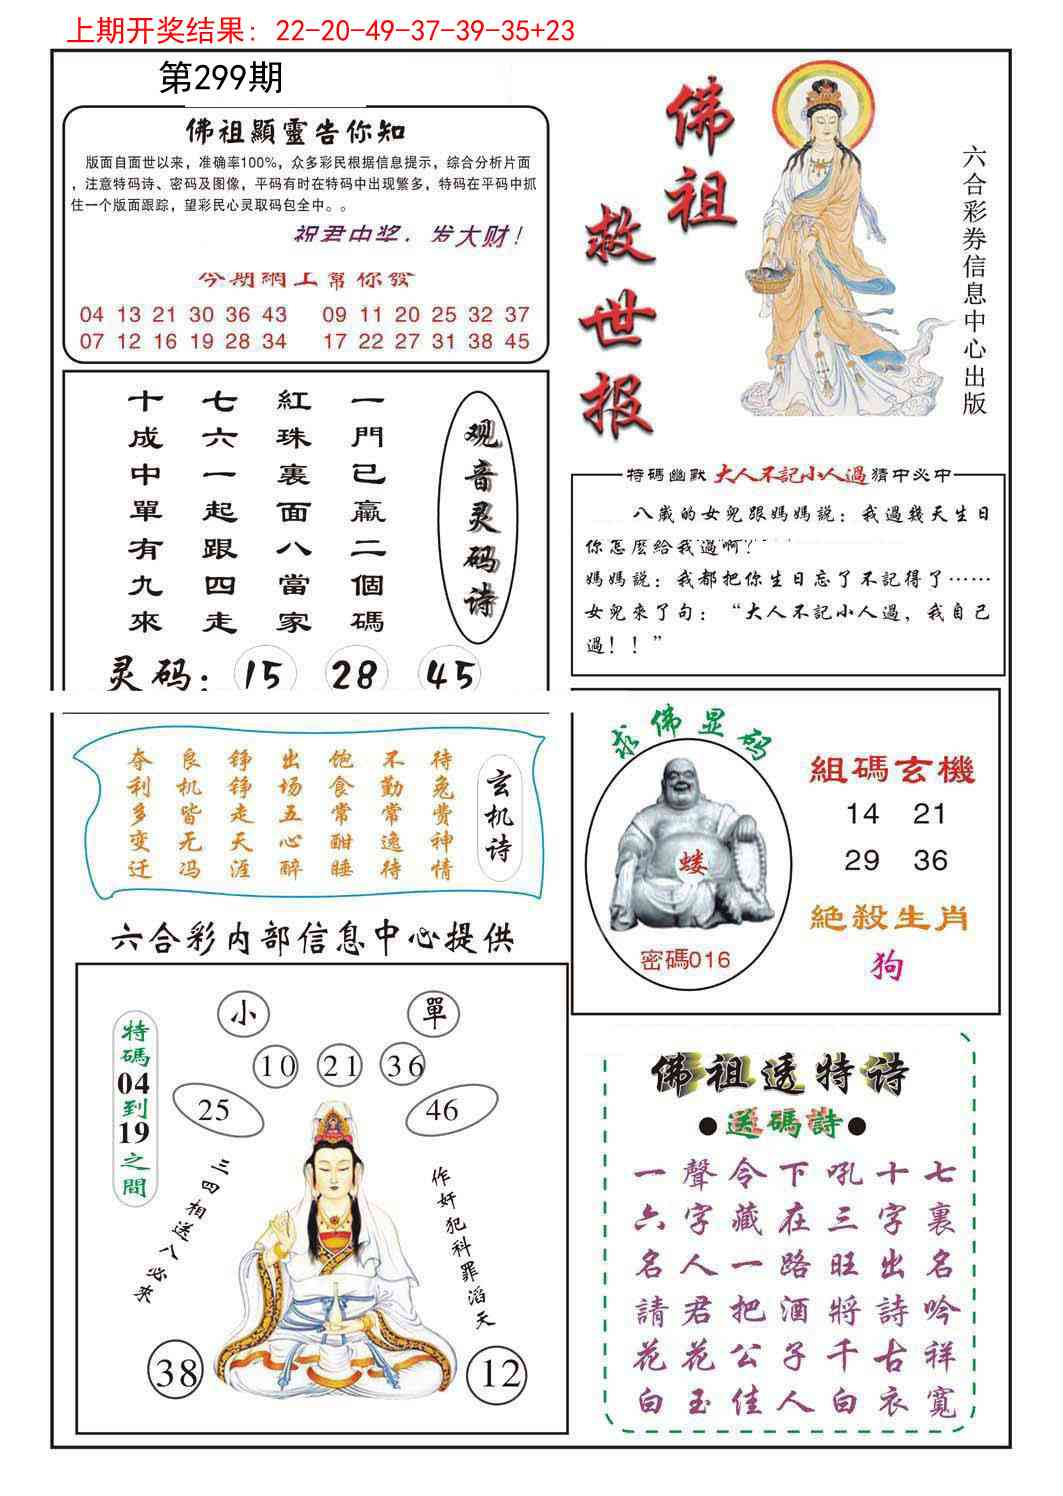 上期开奖结果: 22-20-49-37-39-35+23
第299期
佛祖顯靈告你知
版面自面世以来，准确率100%，众多彩民根据信息提示，综合分析片面
，注意特码诗、密码及图像，平码有时在特码中出现繁多，特码在平码中抓
住一个版面跟踪，望彩民心灵取码包全中。。
祝君中奖，发大财！
今期網上幫你發
04 13 21 30 36 43 09 11 20 25 32 37
07 12 16 19 28 34 17 22 27 31 38 45
佛祖
救世报
六合彩券信息中心出版
观音灵码诗
一門已贏二個碼
紅珠裏面八當家
七六一起跟四走
十成中單有九來
灵码: 15 28 45
特碼幽默 大人不記小人過 猜中必中
八歲的女兒跟媽媽説：我過幾天生日
你怎麽給我過啊？
媽媽説：我都把你生日忘了不記得了……
女兒來了句：“大人不記小人過，我自己
過！！”
玄机诗
待兔费神情
不勤常逸待
饱食常酣睡
出场五心醉
铮铮走天涯
良机皆无冯
夺利多变迁
求佛显码
蝼
密碼016
組碼玄機
14 21
29 36
絕殺生肖
狗
六合彩内部信息中心提供
小 單
10 21 36
25 46
特碼04到19之間
三四相送八必來
作奸犯科罪滔天
38 12
佛祖透特诗
●送碼詩●
一聲令下吼十七
六字藏在三字裏
名人一路旺出名
請君把酒將詩吟
花花公子千古祥
白玉佳人白衣寬